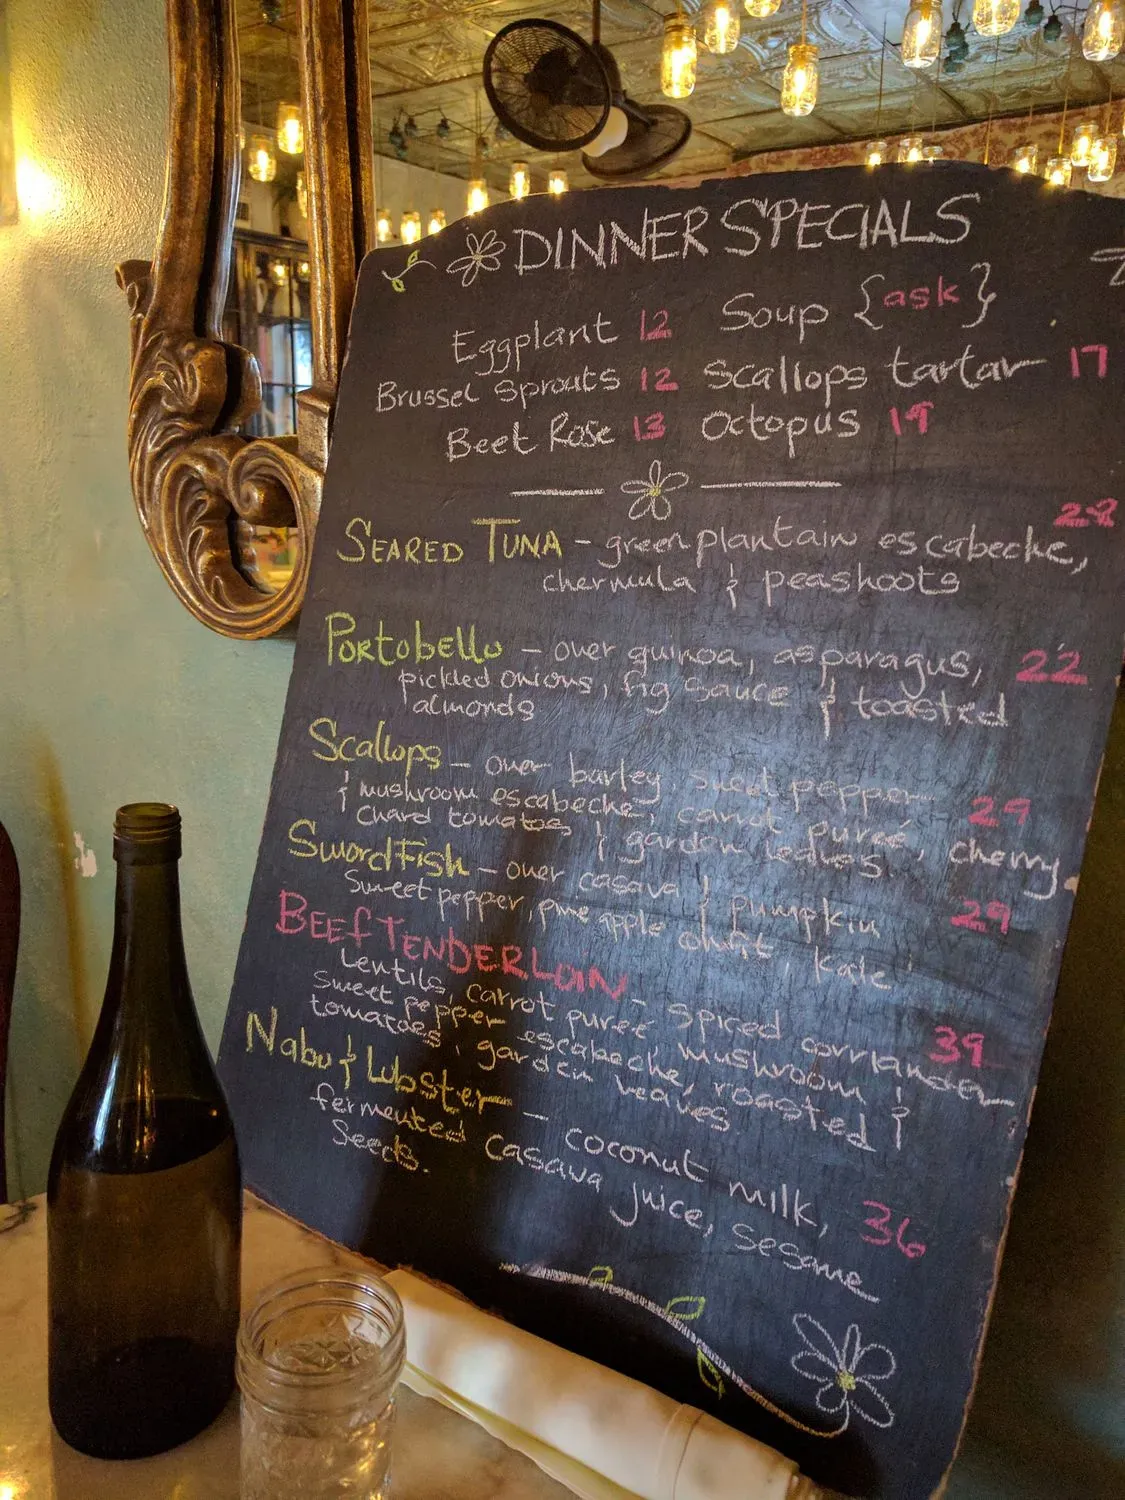 DINNER SPECIALS
Eggplant 12 Soup {ask}
Brussel sprouts 12 Scallops tartar 17
Beet Rose 13 Octopus 19
28
SEARED TUNA - green plantain escabeche,
chermula & peashoots
Portobello - over quinoa, asparagus, 22
pickled onions, fig sauce & toasted
almonds
Scallops - over barley, sweet pepper
& mushroom escabeche, carrot pureé, cherry 29
chard tomatos & garden leaves
SwordFish - over casava & pumpkin 29
Sweet pepper, pineapple confit kale
BEEF TENDERLOIN - spiced corriander 39
Lentils, carrot pureé
sweet pepper escabeche, mushroom &
tomatoes, garden leaves roasted &
Nabu & Lobster - coconut milk, 36
fermented casava juice, sesame
Seeds.